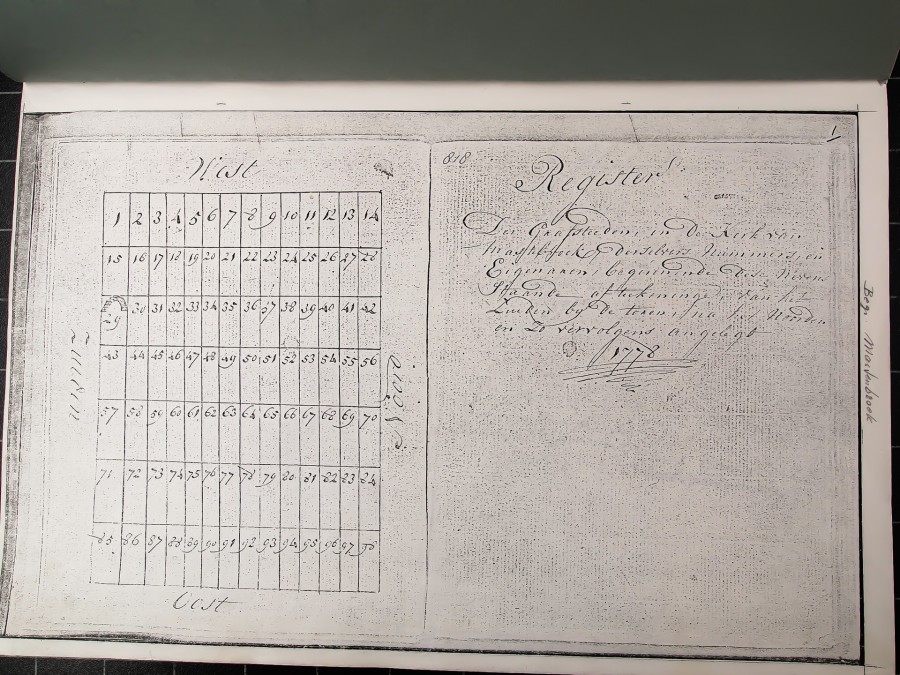 West
1 2 3 4 5 6 7 8 9 10 11 12 13 14
15 16 17 18 19 20 21 22 23 24 25 26 27 28
29 30 31 32 33 34 35 36 37 38 39 40 41 42
43 44 45 46 47 48 49 50 51 52 53 54 55 56
57 58 59 60 61 62 63 64 65 66 67 68 69 70
71 72 73 74 75 76 77 78 79 80 81 82 83 84
85 86 87 88 89 90 91 92 93 94 95 96 97 98
Zuiden
Oost
1
818
Register
Der Grafsteden in De Kerk van
Derselver Nummers, en
Eigenaren, beginnende Deze Nevens
Staande aftekeninge van het
Zuiden by De toren na het Noorden
en Zo vervolgens angelegt
1778
Beg. Maartensbroek